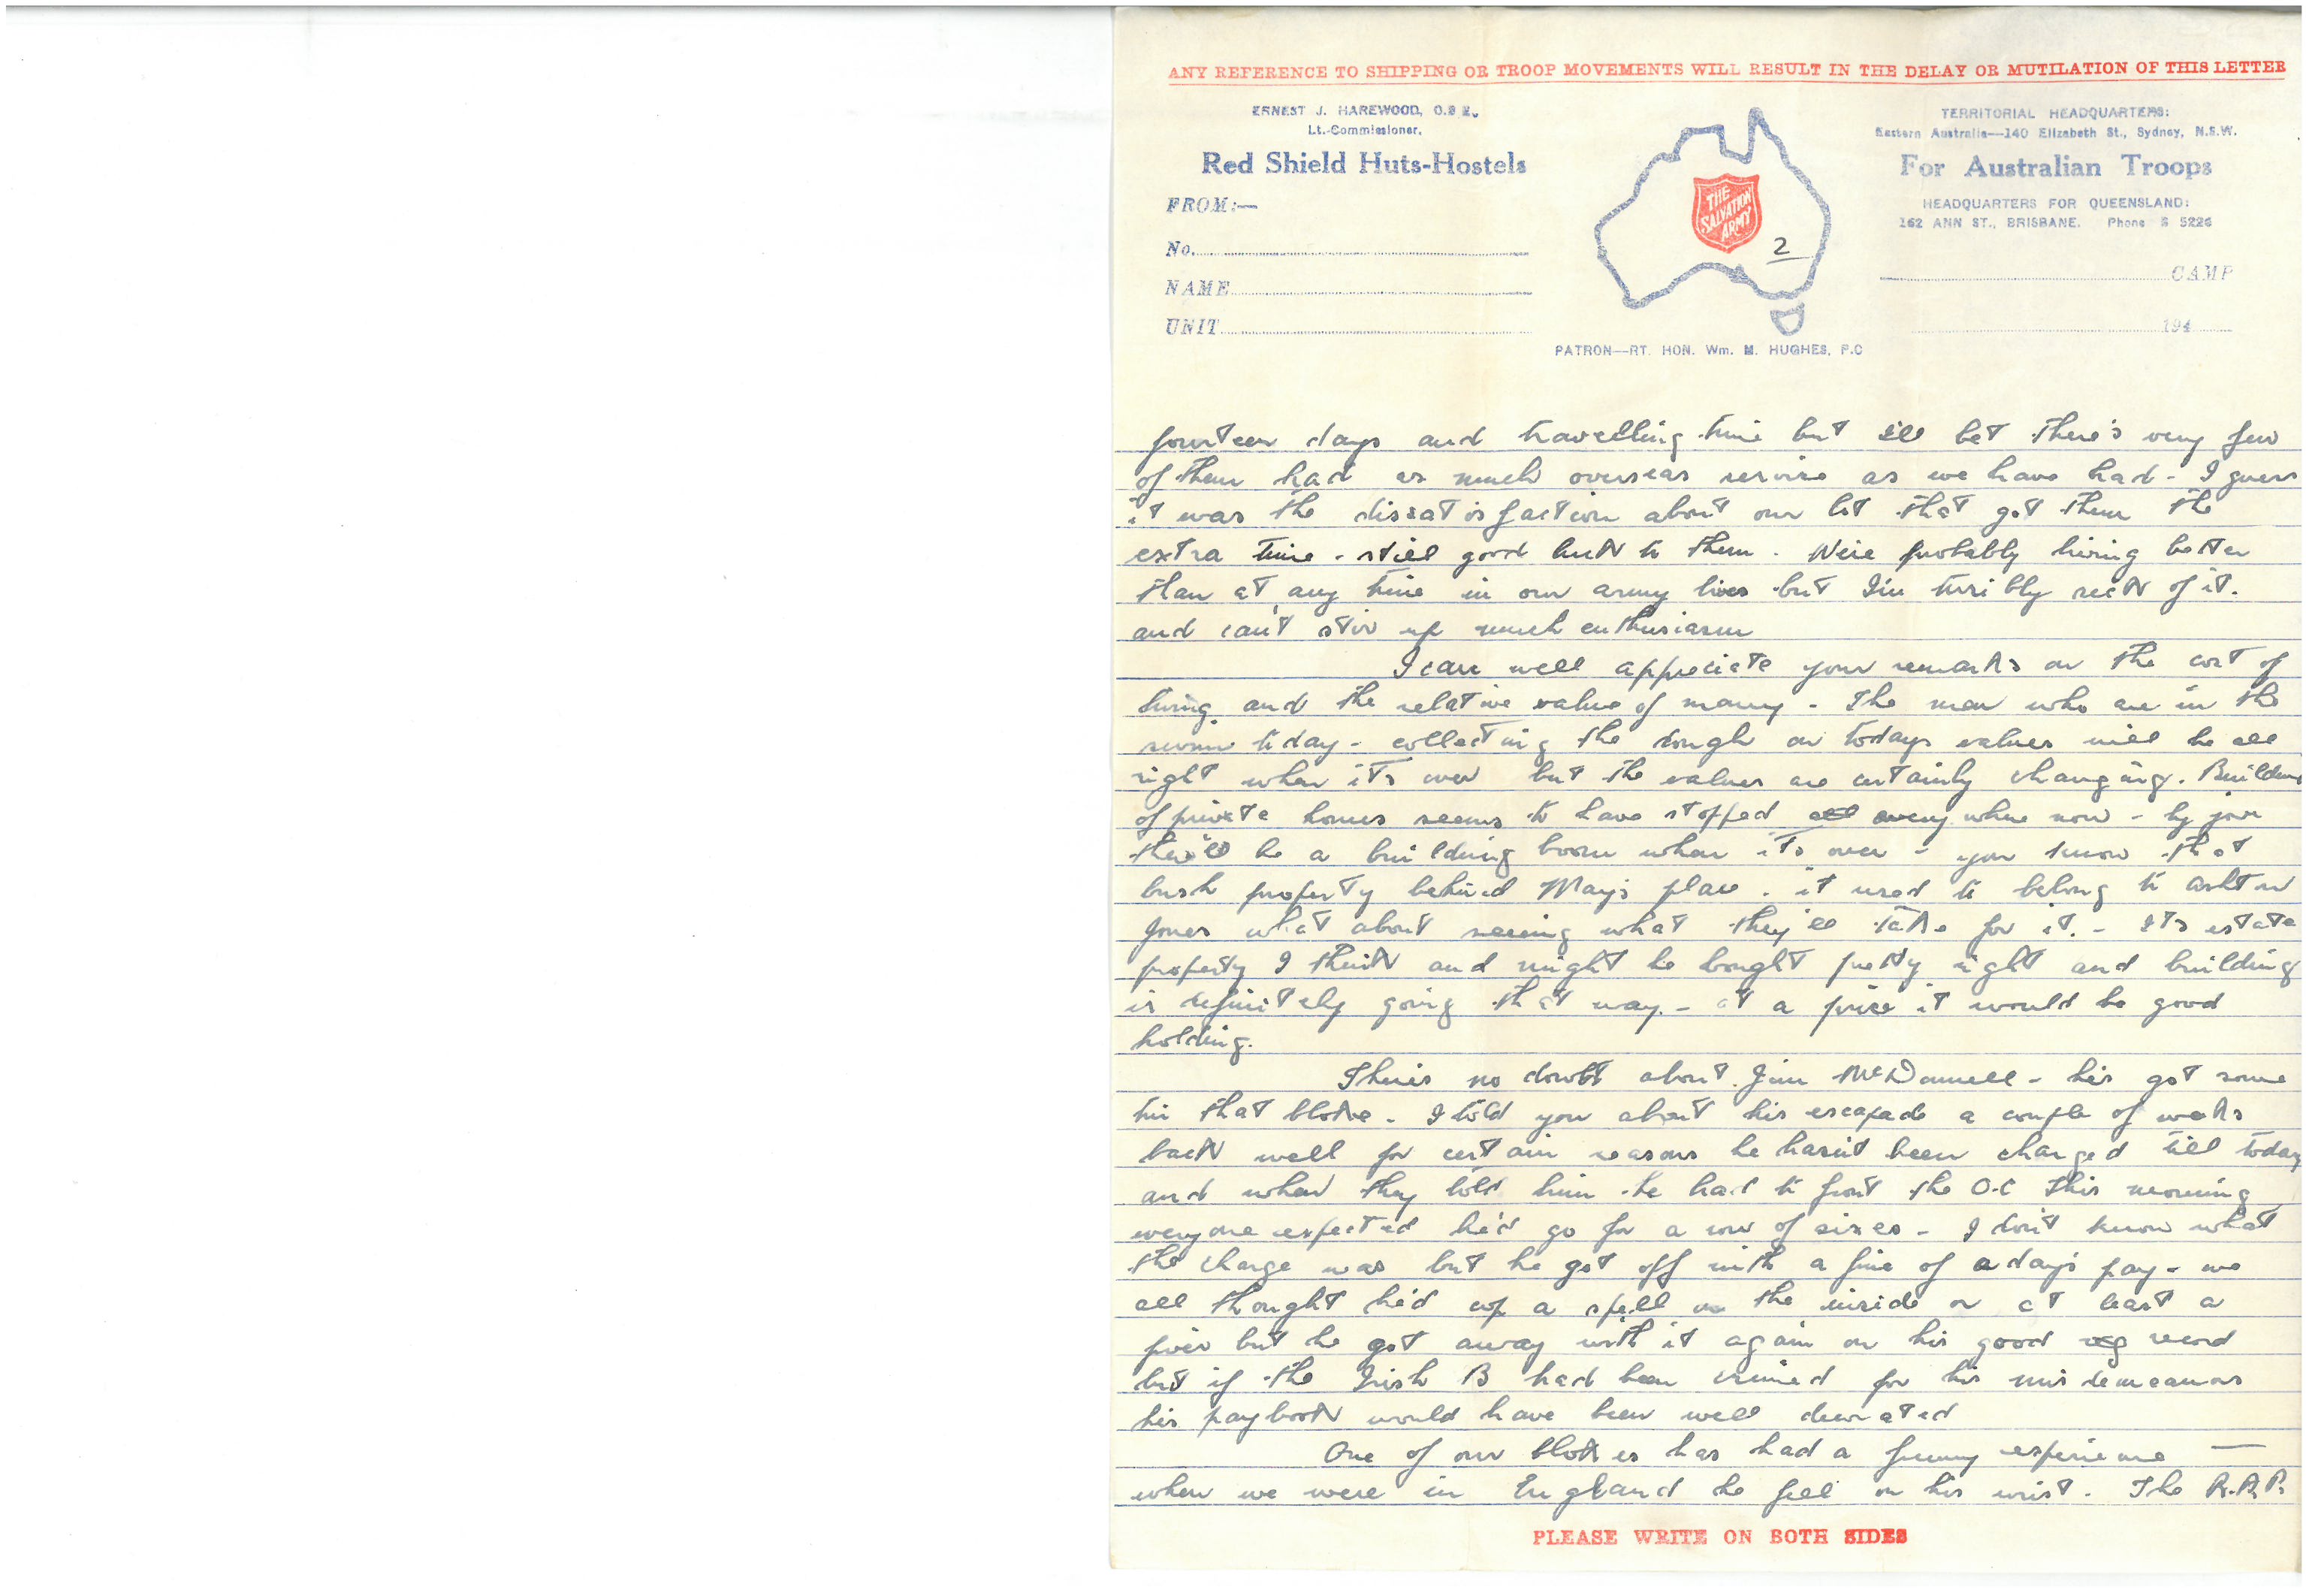 ANY REFERENCE TO SHIPPING OR TROOP MOVEMENTS WILL RESULT IN THE DELAY OR MUTILATION OF THIS LETTER
ERNEST J. HAREWOOD, O.B.E.
Lt.-Commissioner.
Red Shield Huts-Hostels
FROM:—
No.
NAME
UNIT
THE
SALVATION
ARMY
2
PATRON—RT. HON. Wm. M. HUGHES, P.C
TERRITORIAL HEADQUARTERS:
Eastern Australia—140 Elizabeth St., Sydney, N.S.W.
For Australian Troops
HEADQUARTERS FOR QUEENSLAND:
162 ANN ST., BRISBANE. Phone B 5226
CAMP
194
fourteen days and travelling time but I'll bet there's very few
of them had as much overseas service as we have had - I guess
it was the dissatisfaction about our lot that got them the
extra time - still good luck to them. We're probably living better
than at any time in our army lives but I'm terribly sick of it.
and can't stir up much enthusiasm
I can well appreciate your remarks on the cost of
living and the relative value of money - The men who are in the
swim today - collecting the dough on todays values will be all
right when it's over but the values are certainly changing. Building
of private homes seems to have stopped all everywhere now - by jove
there'll be a building boom when it's over - you know that
bush property behind May's place. it used to belong to Ashton
Jones what about seeing what they'll take for it. - It's estate
property I think and might be bought pretty right and building
is definitely going that way - at a price it would be good
holding.
There's no doubt about Jim McDonnell - he's got some
tin that bloke. I told you about his escapade a couple of weeks
back well for certain reasons he hasn't been charged till today
and when they told him he had to front the O.C this morning
everyone expected he'd go for a row of sixes - I don't know what
the charge was but he got off with a fine of a day's pay - we
all thought he'd cop a spell on the inside or at least a
fiver but he got away with it again on his good record
but if the Irish B had been crimed for his misdemeanors
his paybook would have been well decorated
One of our blokes has had a funny experience —
when we were in England he fell on his wrist. The R.A.P.
PLEASE WRITE ON BOTH SIDES